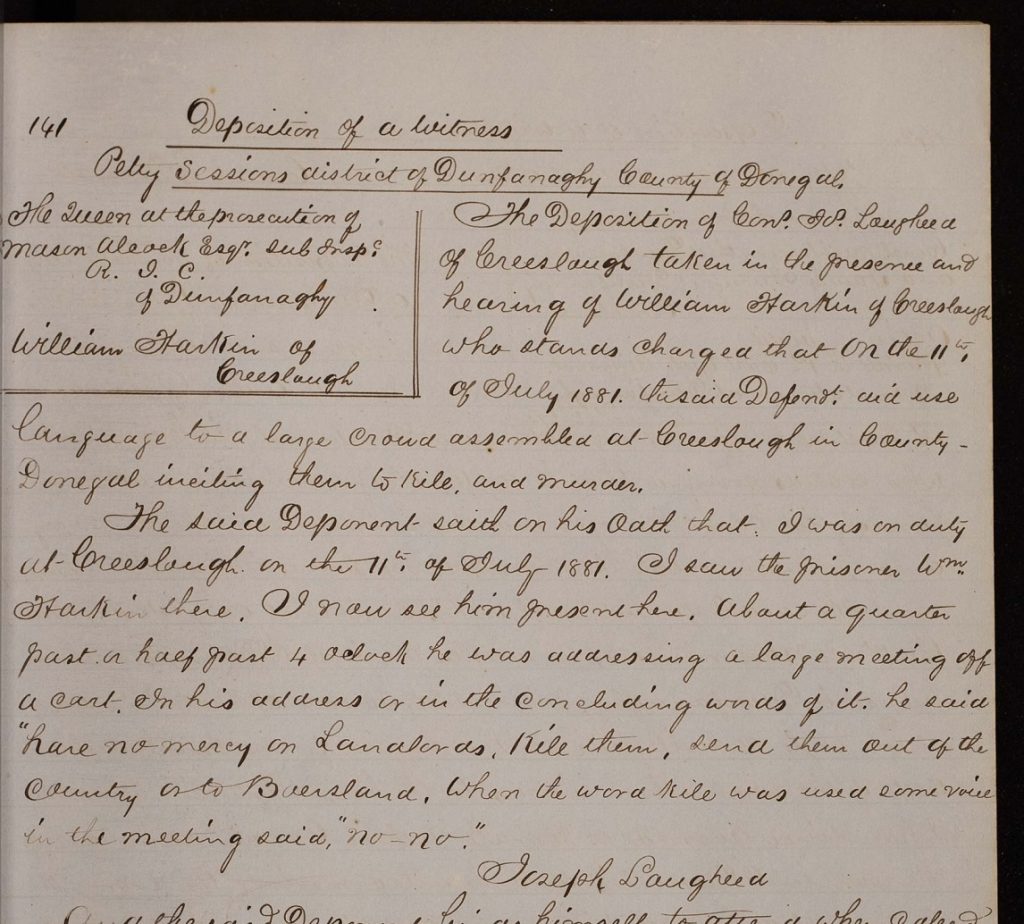 141
Deposition of a Witness
Petty Sessions district of Dunfanaghy County of Donegal.
The Queen at the prosecution of
Mason Alcock Esqr. Sub Inspr
R. I. C.
of Dunfanaghy
William Harkin of
Creeslough
The Deposition of Cons. Jos. Laugheed
of Creeslough taken in the presence and
hearing of William Harkin of Creeslough
who stands charged that On the 11th,
of July 1881. the said Defendt. did use
language to a large crowd assembled at Creeslough in County-
Donegal inciting them to kile, and murder.
The said Deponent saith on his Oath that. I was on duty
at Creeslough. on the 11th. of July 1881. I saw the prisoner Wm.
Harkin there. I now see him present here. About a quarter
past or half past 4 oclock he was addressing a large meeting off
a cart. In his address or in the concluding words of it. he said
"have no mercy on Landlords, kile them, send them out of the
Country or to Boersland. When the word kile was used some voice
in the meeting said, "no-no."
Joseph Laugheed
And the said Deponent himself to attend when called